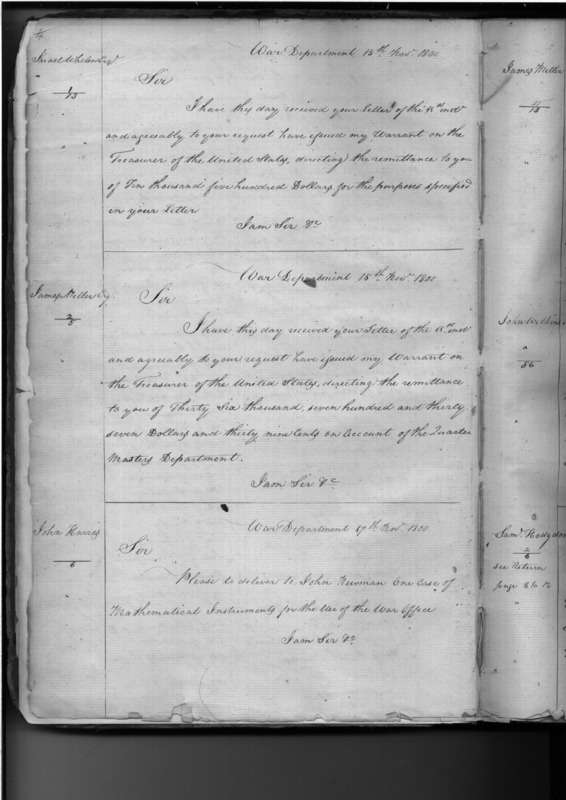 4
Israel Whelen Esqr.
1/3
War Department 15th Novr. 1800
Sir
I have this day received your Letter of the 15th inst
and agreeably to your request have issued my Warrant on the
Treasurer of the United States, directing the remittance to you
of Ten thousand five hundred Dollars for the purposes specified
in your Letter
I am Sir &c
War Department 15th Novr. 1800
James Miller Esq
2/3
Sir
I have this day received your Letter of the 15th inst
and agreeably to your request have issued my Warrant on
the Treasurer of the United States, directing the remittance
to you of Thirty Six thousand, seven hundred and thirty
seven Dollars and thirty nine Cents on Account of the Quarter
Masters Department.
I am Sir &c
War Department 17th Novr. 1800
John Harris
6
Sir
Please to deliver to John Newman One Case of
Mathematical Instruments for the Use of the War Office
I am Sir &c
James Miller
John Wilkins
56
Saml. Hodgdon
2/6
see Return
page 8 to 12